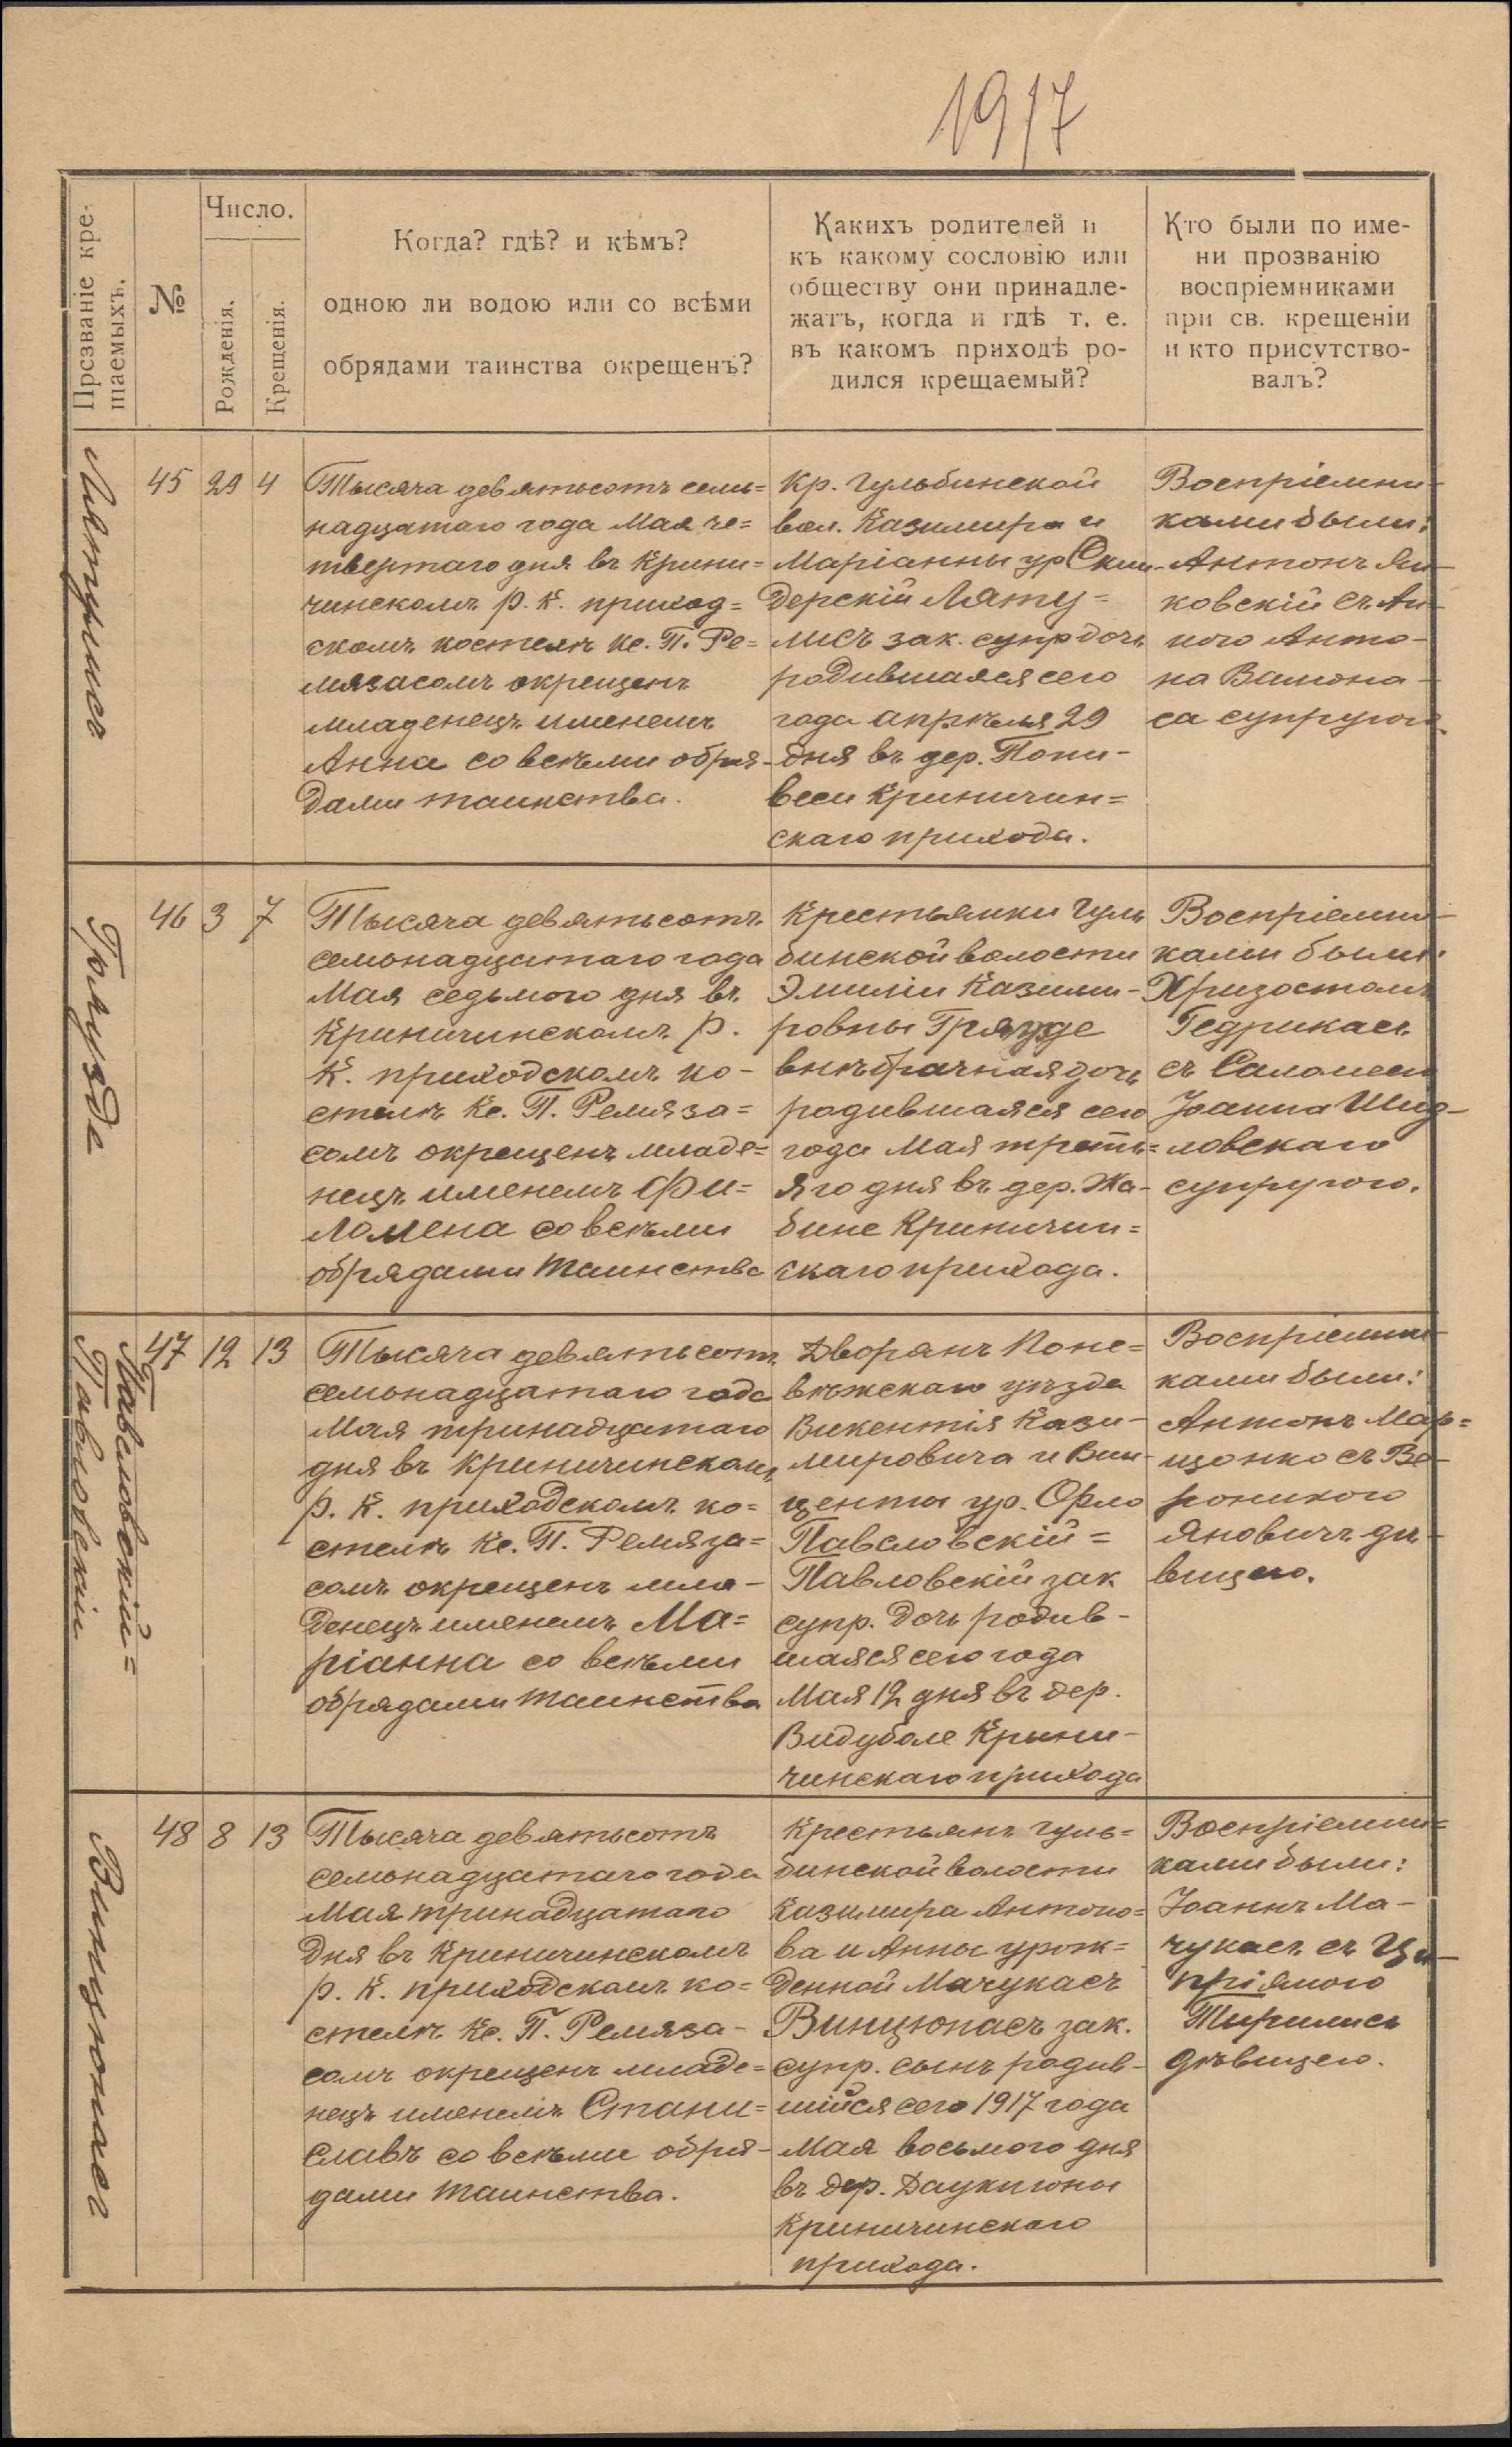 1917
Прозваніе кре-
щаемыхъ.
№
Число.
Рожденія.
Крещенія.
Когда? гдѣ? и кѣмъ?
одною ли водою или со всѣми
обрядами таинства окрещенъ?
Какихъ родителей и
къ какому сословію или
обществу они принадле-
жатъ, когда и гдѣ т. е.
въ какомъ приходѣ ро-
дился крещаемый?
Кто были по име-
ни прозванію
воспріемниками
при св. крещеніи
и кто присутство-
валъ?
45
29
4
Тысяча девятьсотъ семь=
надцатаго года Мая че=
твертаго дня въ Крини=
чинскомъ р. к. приход=
скомъ костелѣ кс. П. Ре=
мязасомъ окрещенъ
младенецъ именемъ
Анна со всѣми обря-
дами таинства.
Кр. Гульбинской
вол. Казимира и
Маріанны ур Скин-
дерскій Ляту=
лисъ зак. супр дочь
родившаяся сего
года апрѣля 29
дня въ дер. Попи-
веси Криничин=
скаго прихода.
Воспріемни-
ками были:
Антонъ Ян-
ковскій съ Ан-
ного Анто-
на Вамона-
са супругого.
46
3
7
Голузде
Тысяча девятьсотъ
семьнадцатаго года
Мая седьмого дня въ
Криничинскомъ р.
к. приходскомъ ко-
стелѣ Кс. П. Ремяза=
сомъ окрещенъ младе=
нецъ именемъ Фи=
ломена со всѣми
обрядами таинства
Крестьянки Гуль
бинской волости
Эмиліи Казими-
ровны
внѣбрачная дочь
родившаяся сего
года Мая треть=
яго дня въ дер. Жа-
бине Криничин=
скаго прихода.
Воспріемни-
ками были:
Хризостомъ
Гедрикасъ
съ Саломеею
Іоанна Шид-
ловскаго
супругого.
Павеловскій=
Павловскій
47
12
13
Тысяча девятьсотъ
семьнадцатаго года
Мая тринадцатаго
дня въ Криничинскомъ
р. к. приходскомъ ко=
стелѣ Кс. П. Ремяза=
сомъ окрещенъ мла-
денецъ именемъ Ма=
ріанна со всѣми
обрядами таинства
Дворянъ Поне=
вѣжскаго уѣзда
Викентія Кази-
мировича и Вин-
центы ур. Орло
Павеловскій=
Павловскій зак
супр. дочь родив-
шаяся сего года
Мая 12 дня въ дер.
Видуболе Крини-
чинскаго прихода
Воспріемни-
ками были:
Антонъ Мар=
цонко съ Ве-
роникого
Яновичъ дѣ-
вицею.
Винцюнасъ
48
8
13
Тысяча девятьсотъ
семьнадцатаго года
Мая тринадцатаго
дня въ Криничинскомъ
р. к. приходскомъ ко=
стелѣ Кс. П. Ремяза-
сомъ окрещенъ младе=
нецъ именемъ Стани=
славъ со всѣми обря-
дами таинства.
Крестьянъ Гуль=
бинской волости
Казимира Антоно=
ва и Анны урож=
денной Мачукасъ
Винцюнасъ зак.
супр. сынъ родив-
шійся сего 1917 года
Мая восьмого дня
въ дер. Даукнюны
Криничинскаго
прихода.
Воспріемни=
ками были:
Іоаннъ Ма-
чукасъ съ Ци-
пріяного
Тирились
дѣвицею.